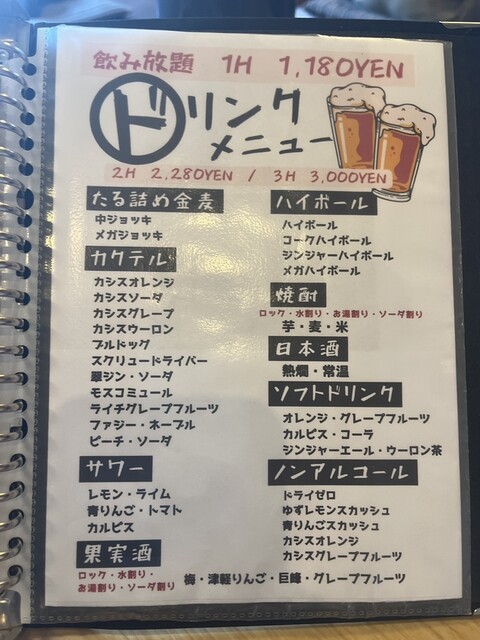 飲み放題 1H 1,180YEN
ドリンク
メニュー
2H 2,280YEN / 3H 3,000YEN
たる詰め金麦
中ジョッキ
メガジョッキ
カクテル
カシスオレンジ
カシスソーダ
カシスグレープ
カシスウーロン
ブルドッグ
スクリュードライバー
翠ジン・ソーダ
モスコミュール
ライチグレープフルーツ
ファジー・ネーブル
ピーチ・ソーダ
サワー
レモン・ライム
青りんご・トマト
カルピス
果実酒
ロック・水割り・
お湯割り・ソーダ割り
梅・津軽りんご・巨峰・グレープフルーツ
ハイボール
ハイボール
コークハイボール
ジンジャーハイボール
メガハイボール
焼酎
ロック・水割り・お湯割り・ソーダ割り
芋・麦・米
日本酒
熱燗・常温
ソフトドリンク
オレンジ・グレープフルーツ
カルピス・コーラ
ジンジャーエール・ウーロン茶
ノンアルコール
ドライゼロ
ゆずレモンスカッシュ
青りんごスカッシュ
カシスオレンジ
カシスグレープフルーツ